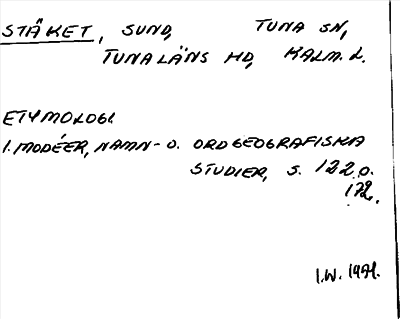 STÄKET, SUND, TUNA SN,
TUNALÄNS HD, KALM. L.
ETYMOLOGI
I. MODÉER, NAMN- O. ORDGEOGRAFISKA
STUDIER, S. 122 O.
172.
I.W. 1971.